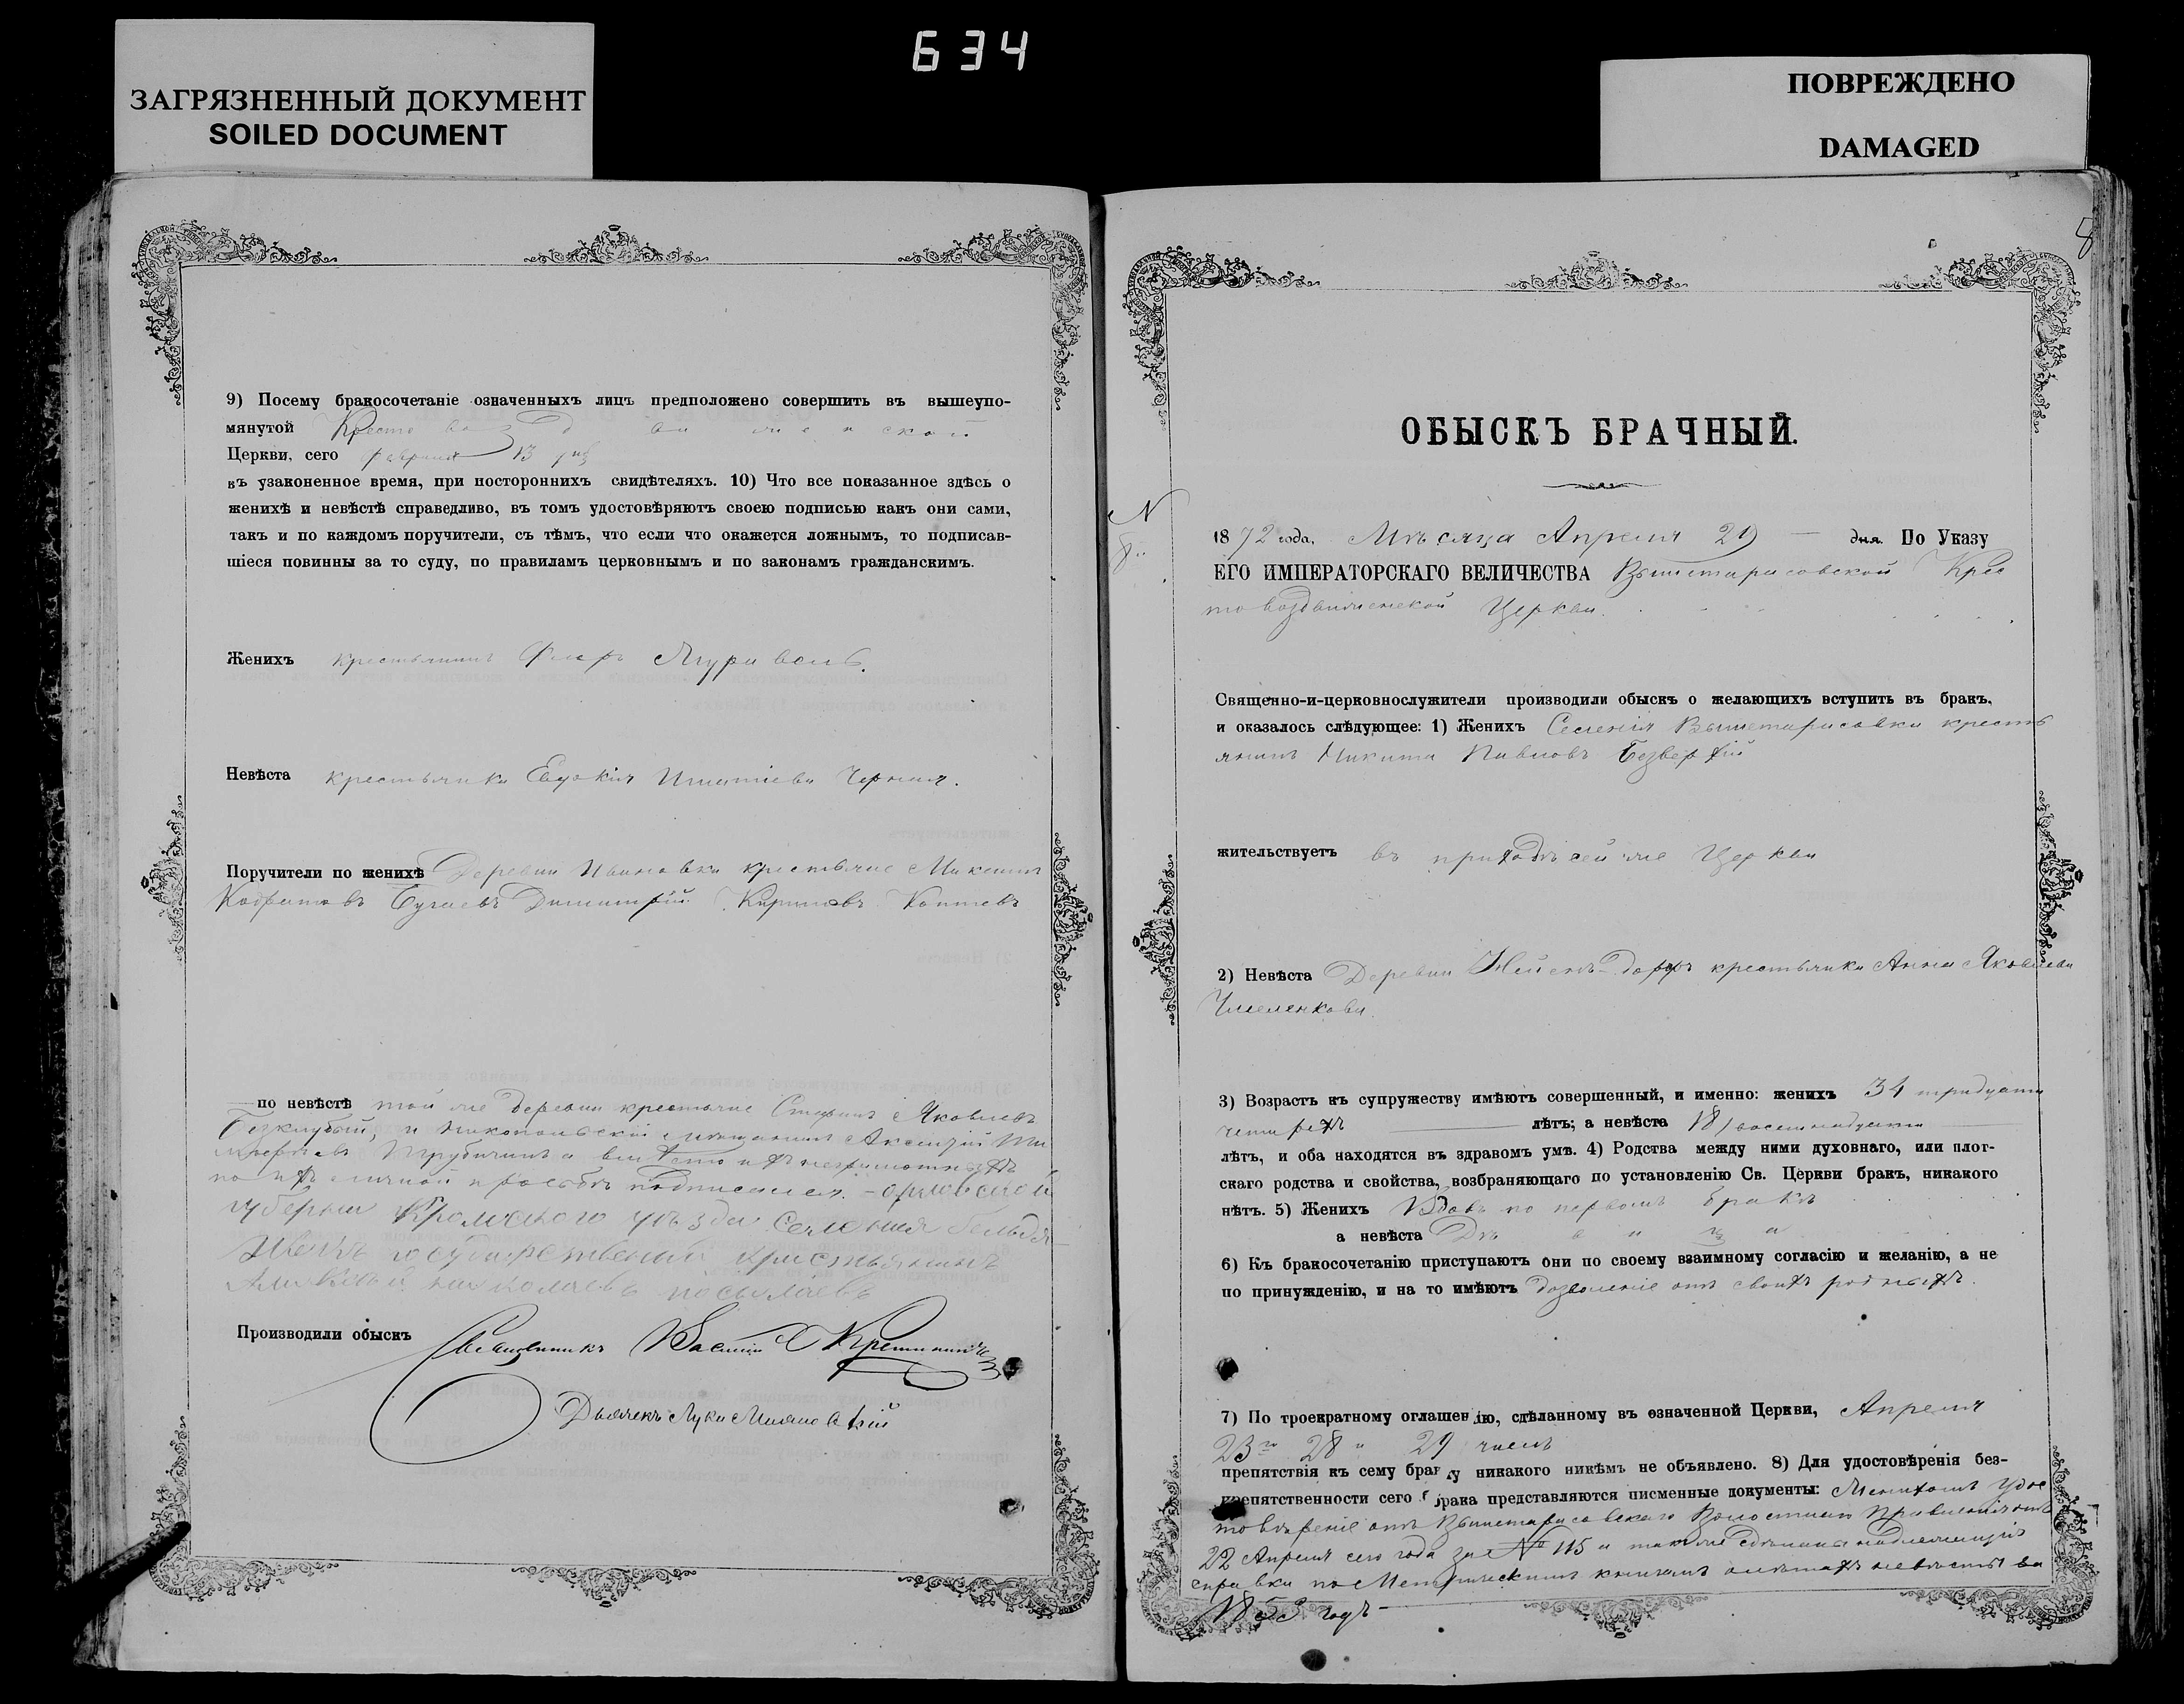 634
ЗАГРЯЗНЕННЫЙ ДОКУМЕНТ
SOILED DOCUMENT
ПОВРЕЖДЕНО
DAMAGED
9) Посему бракосочетаніе означенныхъ лицъ предположено совершить въ вышеупо-
мянутой Крестовоздвиженской
Церкви, сего февраля 13 дня
въ узаконенное время, при постороннихъ свидѣтеляхъ. 10) Что все показанное здѣсь о
женихѣ и невѣстѣ справедливо, въ томъ удостовѣряютъ своею подписью какъ они сами,
такъ и по каждомъ поручители, съ тѣмъ, что если что окажется ложнымъ, то подписав-
шіеся повинны за то суду, по правиламъ церковнымъ и по законамъ гражданскимъ.
Женихъ крестьянинъ Флоръ
Невѣста крестьянка Евдокія Игнатіева Черная.
Поручители по женихѣ Деревни Ивановки крестьяне
Бугаевъ Димитрій Коптевъ
по невѣстѣ той же деревни крестьяне Стефанъ Яковлевъ
и Никопольскій мѣщанинъ Аксентій
а вмѣсто ихъ неграмотныхъ
по ихъ личной прозьбѣ подписался. - орловской
губернии Кромского уѣзда селения
государственый кристьянинъ
николаевъ
Производили обыскъ Священникъ Василій
Дьячекъ Лука
8
ОБЫСКЪ БРАЧНЫЙ.
N
8.
1872 года, Мѣсяца Апреля 29 — дня. По Указу
ЕГО ИМПЕРАТОРСКАГО ВЕЛИЧЕСТВА Вышетарасовской Крес
товоздвиженской Церкви.
Священно-и-церковнослужители производили обыскъ о желающихъ вступить въ бракъ,
и оказалось слѣдующее: 1) Женихъ Селенія Вышетарасовки кресть
янинъ Никита Павловъ Безверхій
жительствуетъ въ приходѣ сей же Церкви
2) Невѣста Деревни крестьянка Анна Яковлева
Чмеленкова.
3) Возрастъ къ супружеству имѣютъ совершенный, и именно: женихъ 34 тридцати
четирехъ лѣтъ; а невѣста 18 восемнадцати
лѣтъ, и оба находятся въ здравомъ умѣ. 4) Родства между ними духовнаго, или плот-
скаго родства и свойства, возбраняющаго по установленію Св. Церкви бракъ, никакого
нѣтъ. 5) Женихъ Вдовъ по первомъ бракѣ
а невѣста Дѣвица
6) Къ бракосочетанію приступаютъ они по своему взаимному согласію и желанію, а не
по принужденію, и на то имѣютъ дозволеніе отъ своихъ родныхъ.
7) По троекратному оглашенію, сдѣланному въ означенной Церкви, Апреля
23го 28 и 29 числъ
препятствія къ сему браку никакого никѣмъ не объявлено. 8) Для удостовѣренія без-
препятственности сего брака представляются писменные документы: Женихомъ удос
товѣреніе отъ Вышетарасовскаго Волостнаго Правленія отъ
22 Апреля сего года за № 115 и также сдѣлана надлежащая
справка по Метрическимъ книгамъ о лѣтахъ невѣсты за
1853 годъ